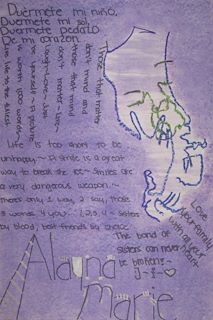 Duérmete mi niño,
Duérmete mi sol,
Duérmete pedazo
De mi corazon.
Those that matter
don't mind and
those that mind
don't matter. Love
Life is too short to be
unhappy. ~ A smile is a great
way to break the ice ~ Smiles are
a very dangerous weapon. ~
Theres only 1 way 2 say, those
3 words 4 you. ~ 1, 2, 3, 4 ~ Sisters
by blood, best friends by choice.
Love your family
with all your
heart.
The bond of
sisters can never
be broken! ~
Alayna
Marie